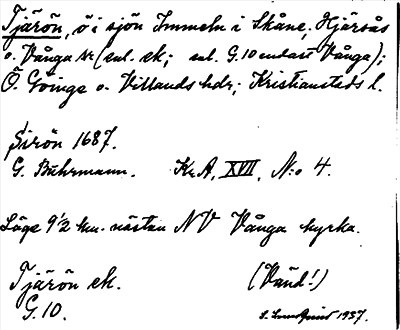 Tjärön, ö i sjön Immeln i Skåne, Hjärsås
o. Vånga snr (enl. ek; enl. G.10 endast Vånga);
Ö. Göinge o. Villands hdr; Kristianstads l.
Sirön 1687.
G. Buhrmann. Kr.A. XVII, N:o 4.
Läge 9 1/2 km. nästan NV Vånga kyrka.
Tjärön ek. (Vänd!)
G.10. 1937.